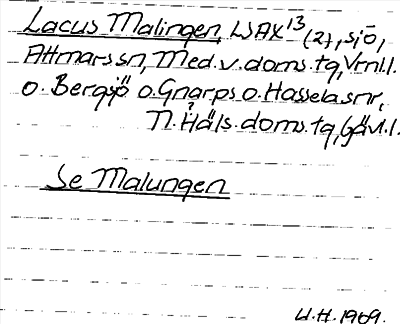 Lacus Malingen, WAX13 (2), sjö,
Attmars sn, Med. v. doms. tg, Vrnl. l.
o. Bergsjö o. Gnarps o. Hassela snr,
N. Häls. doms. tg, Gävl. l.
Se Malungen
U.H. 1969.